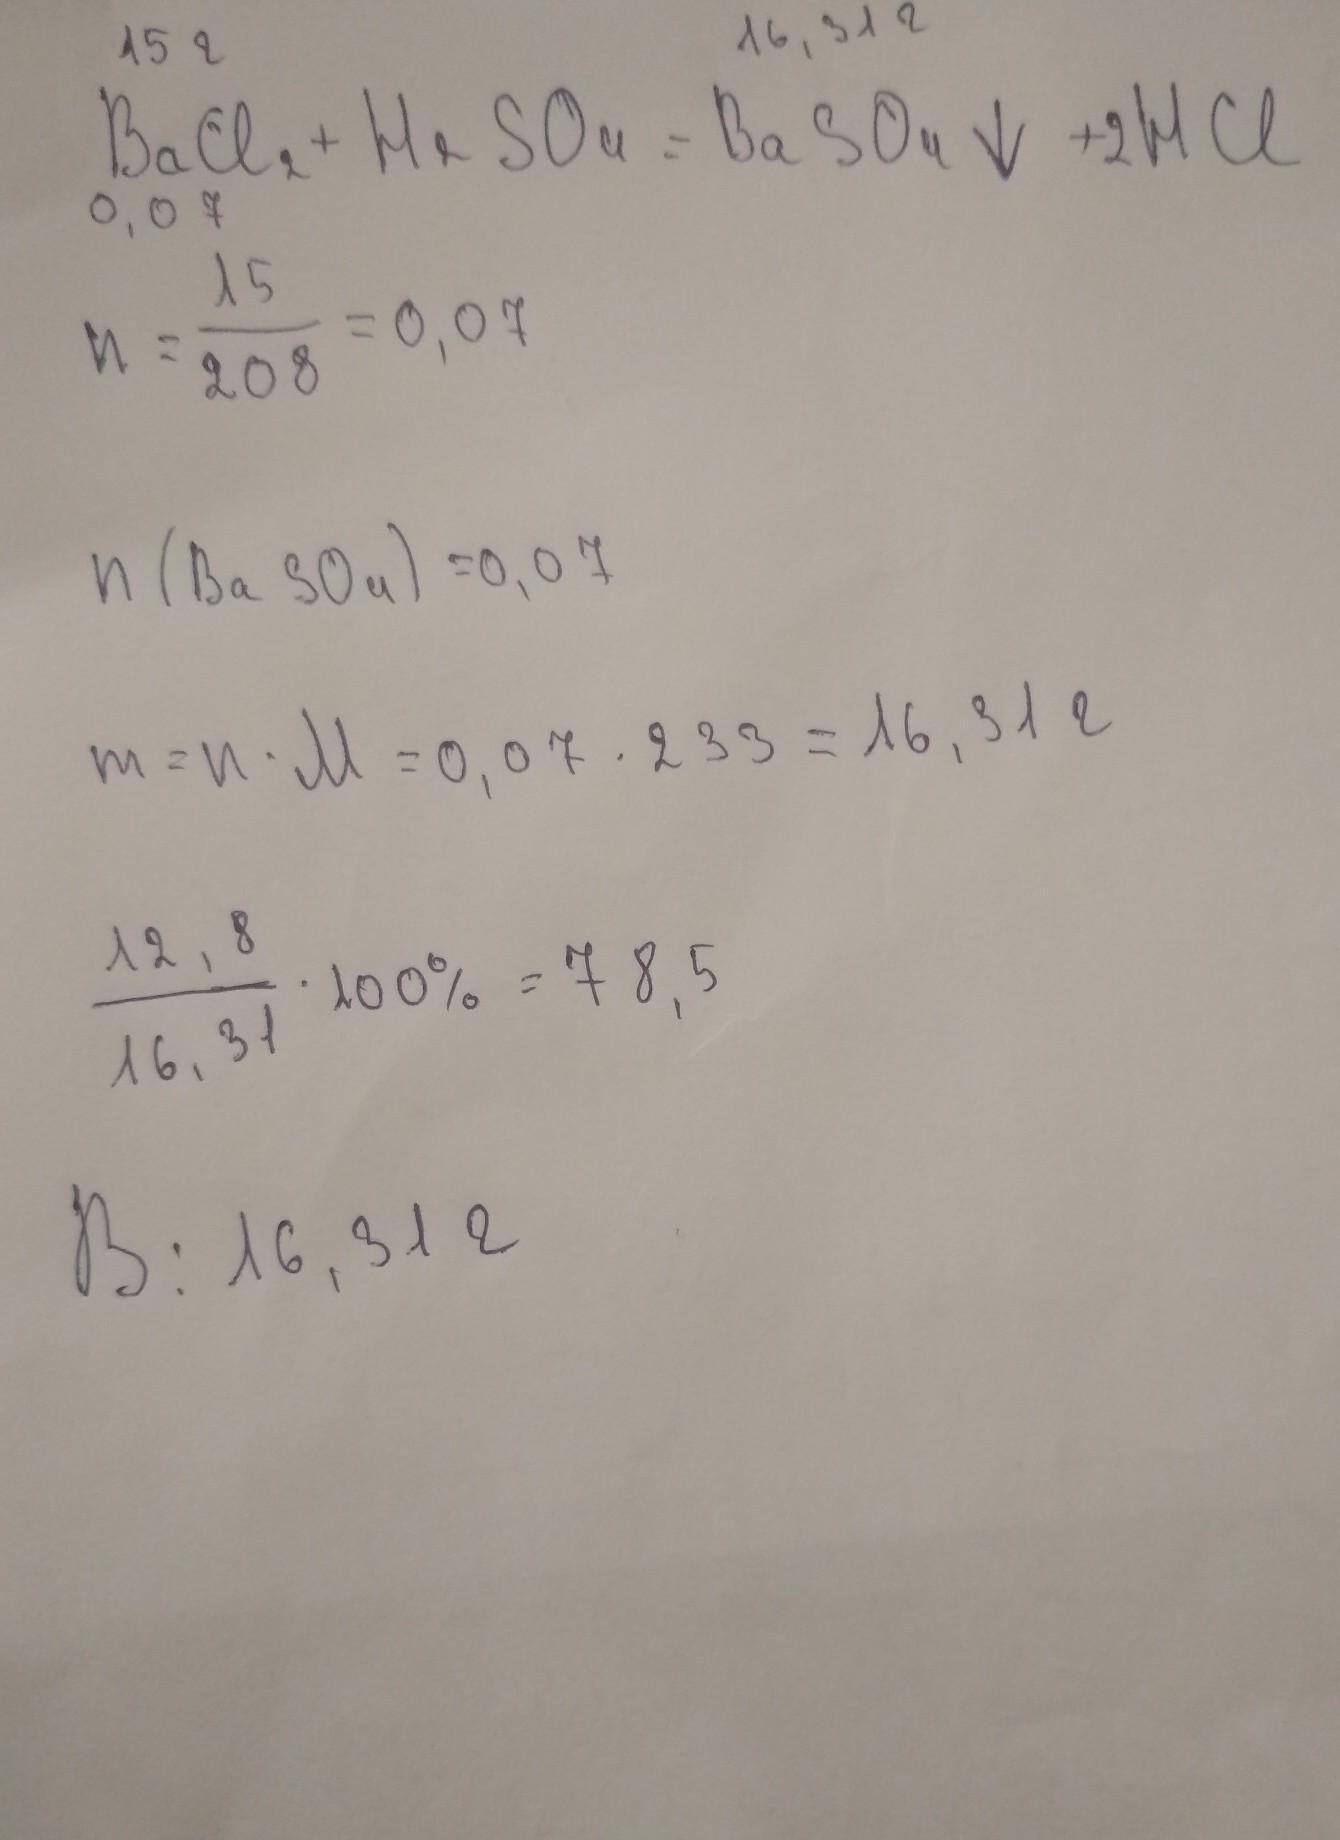 15 г 16,31 г
BaCl₂ + H₂SO₄ = BaSO₄ ↓ + 2HCl
0,07
n = 15/208 = 0,07
n (BaSO₄) = 0,07
m = n · M = 0,07 · 233 = 16,31 г
12,8/16,31 · 100% = 78,5
В: 16,31 г